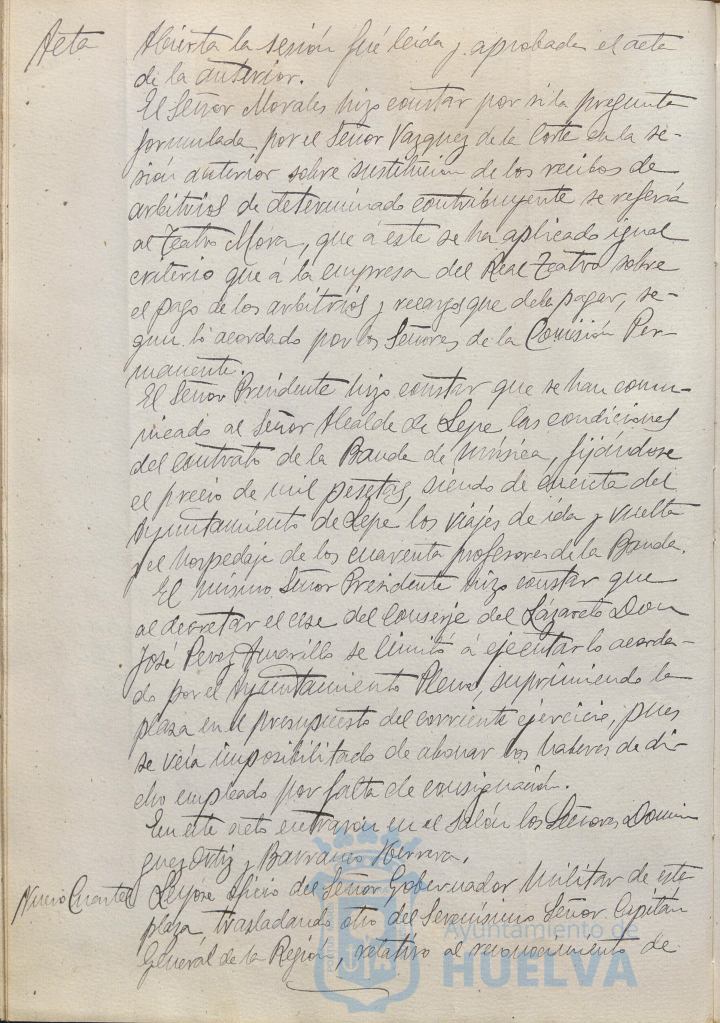 Acta
Abierta la sesión fué leída y aprobada el acta
de la anterior.
El Señor Morales hizo constar por si la pregunta
formulada por el Señor Vazquez de la Corte en la se-
sión anterior sobre sustitucion de los recibos de
arbitrios de determinado contribuyente se refería
al Teatro Mora, que á este se ha aplicado igual
criterio que á la empresa del Real Teatro sobre
el pago de los arbitrios y recargos que debe pagar, se-
gun lo acordado por los Señores de la Comisión Per-
manente.
El Señor Presidente hizo constar que se han comu-
nicado al Señor Alcalde de Lepe las condiciones
del contrato de la Banda de música, fijándose
el precio de mil pesetas, siendo de cuenta del
Ayuntamiento de Lepe los viajes de ida y vuelta
y el hospedaje de los cuarenta profesores de la Banda.
El mismo Señor Presidente hizo constar que
al decretar el cese del Conserje del Lázareto Don
José Perez Amarillo se limitó á ejecutar lo acorda-
do por el Ayuntamiento Pleno, suprimiendo la
plaza en el presupuesto del corriente ejercicio, pues
se veía imposibilitado de abonar los haberes de di-
cho empleado por falta de consignación.
En este acto entraron en el Salón los Señores Domin
guez Ortiz y Barranco Herrera.
Nuevo Cuartel
Leyóse oficio del Señor Gobernador Militar de esta
plaza, trasladando otro del Serenisimo Señor Capitán
General de la Región, relativo al reconocimiento de
Ayuntamiento de
HUELVA